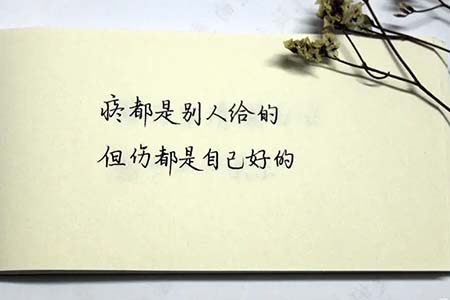 疼都是别人给的
但伤都是自己好的